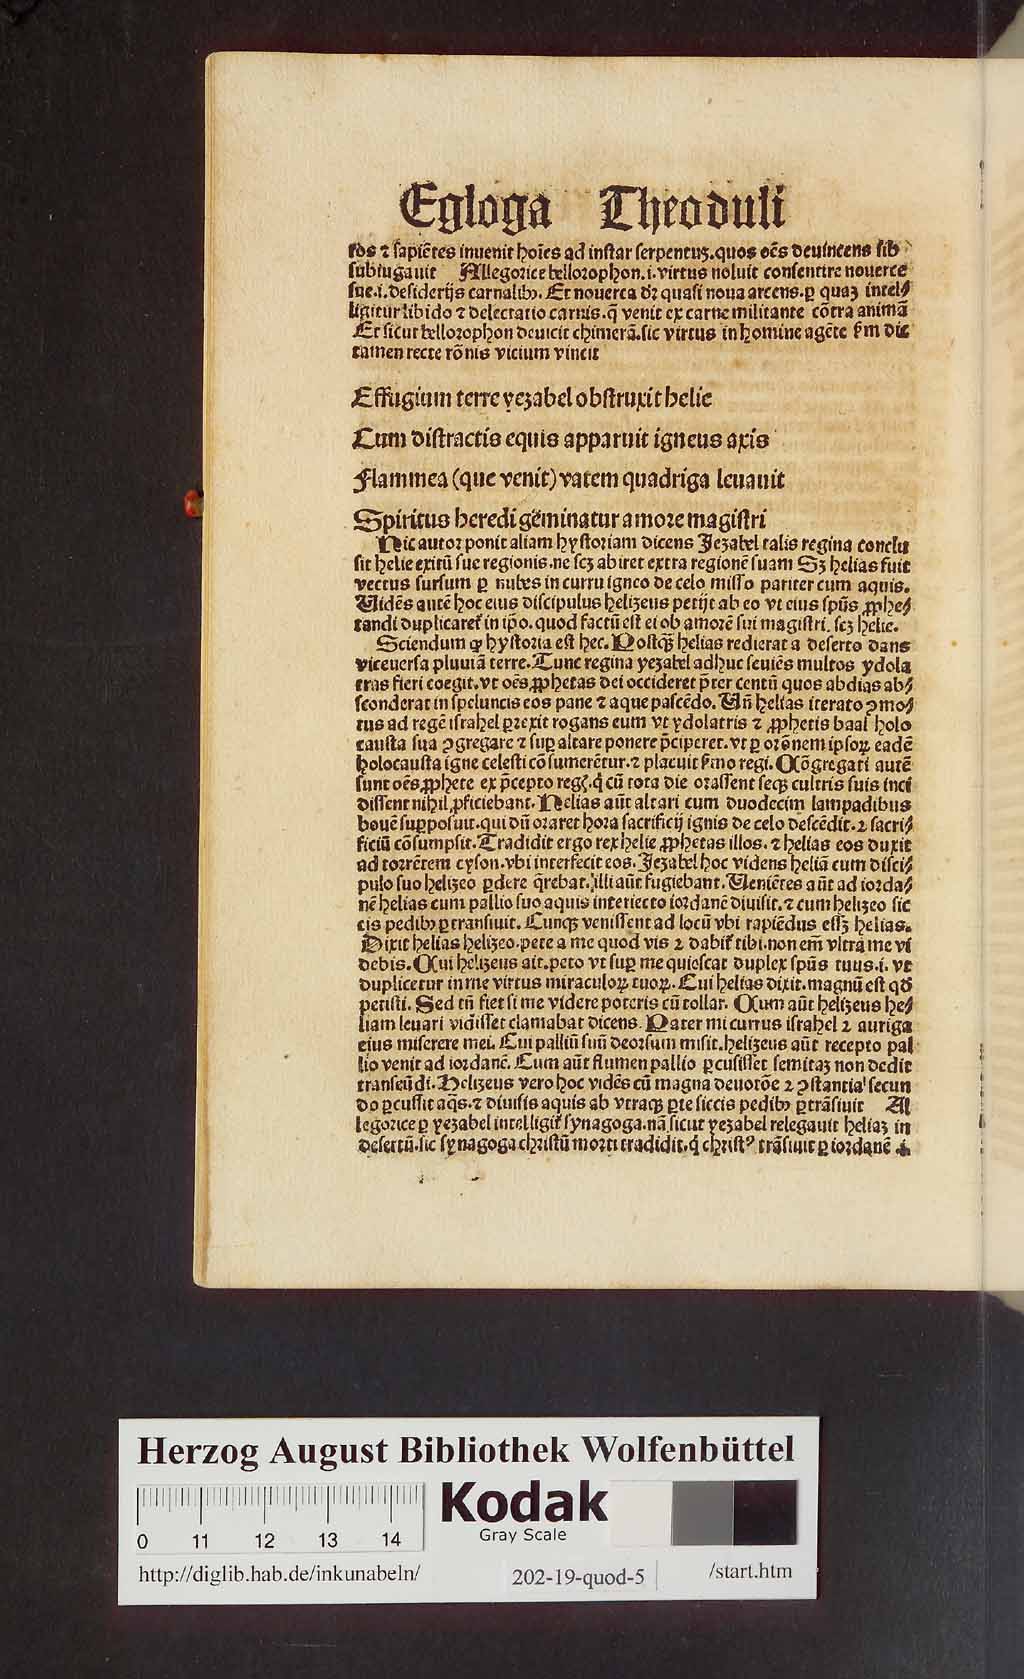 Egloga Theoduli
rōs ⁊ sapiētes inuenit hoīes ad instar serpentuʒ.quos oēs deuincens sib
subiugauit Allegorice bellorophon.i.virtus noluit consentire nouerce
sue.i.desiderijs carnalibꝰ. Et nouerca dr̄ quasi noua arcens.ꝑ quaʒ intel⸗
ligitur libido ⁊ delectatio carnis.q̄ venit ex carne militante cōtra animā
Et sicut bellorophon deuicit chimerā.sic virtus in homine agēte km̄ dic
tamen recte rōnis vicium vincit
Effugium terre yeʒabel obstruxit helie
Cum distractis equis apparuit igneus axis
Flammea (que venit) vatem quadriga leuauit
Spiritus heredi gēminatur amore magistri
Hic autor ponit aliam hystoriam dicens Jeʒabel talis regina conclu
sit helie exitū sue regionis.ne scʒ abiret extra regionē suam Sʒ helias fuit
vectus sursum ꝑ nubes in curru igneo de celo misso pariter cum aquis.
Vidēs autē hoc eius discipulus heliʒeus petijt ab eo vt eius spūs ꝓphe⸗
tandi duplicaret̄ in ip̄o.quod factū est ei ob amorē sui magistri.scʒ helie.
Sciendum ꝙ hystoria est hec. Postqʒ̄ helias redierat a deserto dans
viceuersa pluuiā terre. Tunc regina yeʒabel adhuc seuiēs multos ydola
tras fieri coegit.vt oēs ꝓphetas dei occideret p̄ter centū quos abdias ab⸗
sconderat in speluncis eos pane ⁊ aque pascēdo. Vn̄ helias iterato ꝯmo⸗
tus ad regē israhel ꝑrexit rogans eum vt ydolatris ⁊ ꝓphetis baal holo
causta sua ꝯgregare ⁊ suꝑ altare ponere p̄ciperet.vt ꝑ orōnem ipsoꝝ eadē
holocausta igne celesti cōsumerētur.⁊ placuit ẜmo regi. Cōgregati autē
sunt oēs ꝓphete ex p̄cepto regꝭ.q̄ cū tota die orassent seqʒ cultris suis inci
dissent nihil ꝓficiebant. Helias aūt altari cum duodecim lampadibus
bouē suꝑposuit.qui dū oraret hora sacrificij ignis de celo descēdit.⁊ sacri⸗
ficiū cōsumpsit. Tradidit ergo rex helie ꝓphetas illos.⁊ helias eos duxit
ad torrētem cyson.vbi interfecit eos. Jeʒabel hoc videns heliā cum disci⸗
pulo suo heliʒeo ꝑdere q̄rebat.illi aūt fugiebant. Veniētes aūt ad iorda⸗
nē helias cum pallio suo aquis interiecto iordanē diuisit.⁊ cum heliʒeo sic
cis pedibꝰ ꝑtransiuit. Cunqʒ venissent ad locū vbi rapiēdus essʒ helias.
Dixit helias heliʒeo.pete a me quod vis ⁊ dabit̄ tibi.non em̄ vltra me vi
debis. Cui heliʒeus ait.peto vt suꝑ me quiescat duplex spūs tuus.i. vt
duplicetur in me virtus miraculoꝝ tuoꝝ. Cui helias dixit.magnū est qđ
petisti. Sed tn̄ fiet si me videre poteris cū tollar. Cum aūt heliʒeus he⸗
liam leuari vidisset clamabat dicens. Pater mi currus israhel ⁊ auriga
eius miserere mei. Cui palliū suū deorsum misit.heliʒeus aūt recepto pal
lio venit ad iordanē. Cum aūt flumen pallio ꝑcusisset semitaʒ non dedit
transeūdi. Heliʒeus vero hoc vidēs cū magna deuotōe ⁊ ꝯstantia secun
do ꝑcussit aq̄s.⁊ diuisis aquis ab vtraqʒ ꝑte siccis pedibꝰ ꝑtrāsiuit Al
legorice ꝑ yeʒabel intelligit̄ synagoga.nā sicut yeʒabel relegauit heliaʒ in
desertū.sic synagoga christū morti tradidit.q̄ christꝰ trāsiuit ꝑ iordanē .i.
Herzog August Bibliothek Wolfenbüttel
0 11 12 13 14
Kodak
Gray Scale
http://diglib.hab.de/inkunabeln/ 202-19-quod-5 /start.htm